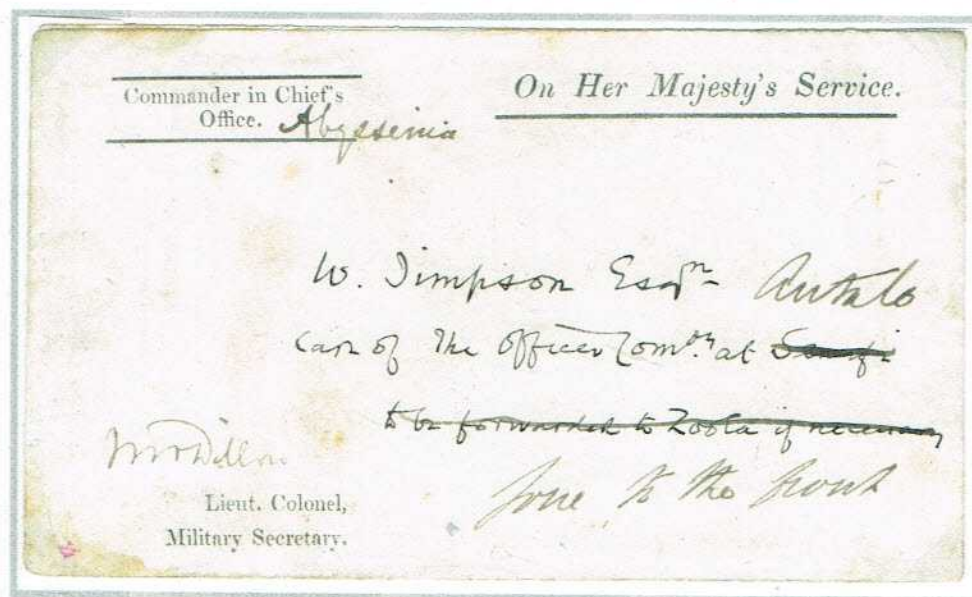 Commander in Chief's
Office. Abyssinia
On Her Majesty's Service.
W. Simpson Esqre Antalo
Care of The Officer Comdg at Senafe
to be forwarded to Zoola if necessary
gone to the front
Dillon
Lieut. Colonel,
Military Secretary.